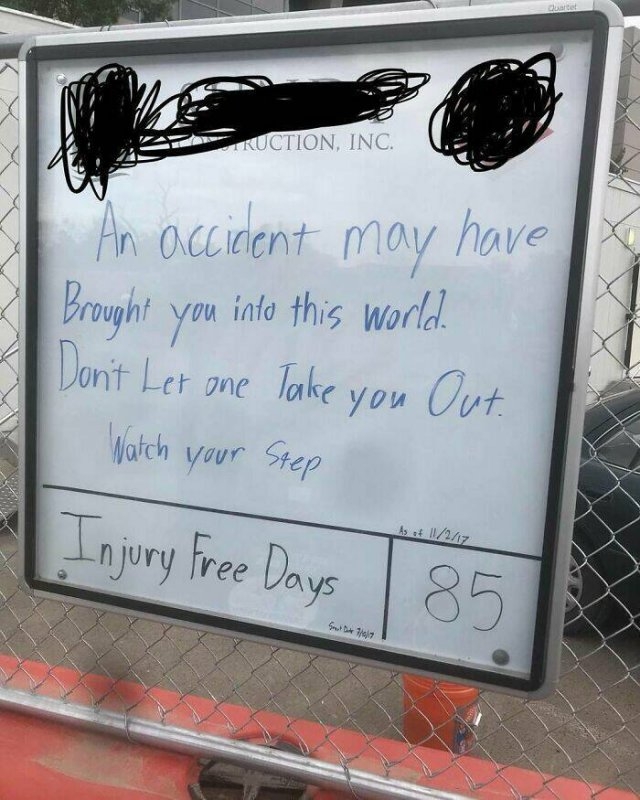 Quartet
CONSTRUCTION, INC.
An accident may have
Brought you into this world.
Don't Let one Take you Out.
Watch your Step
As of 11/2/17
Injury Free Days
85
Start Date